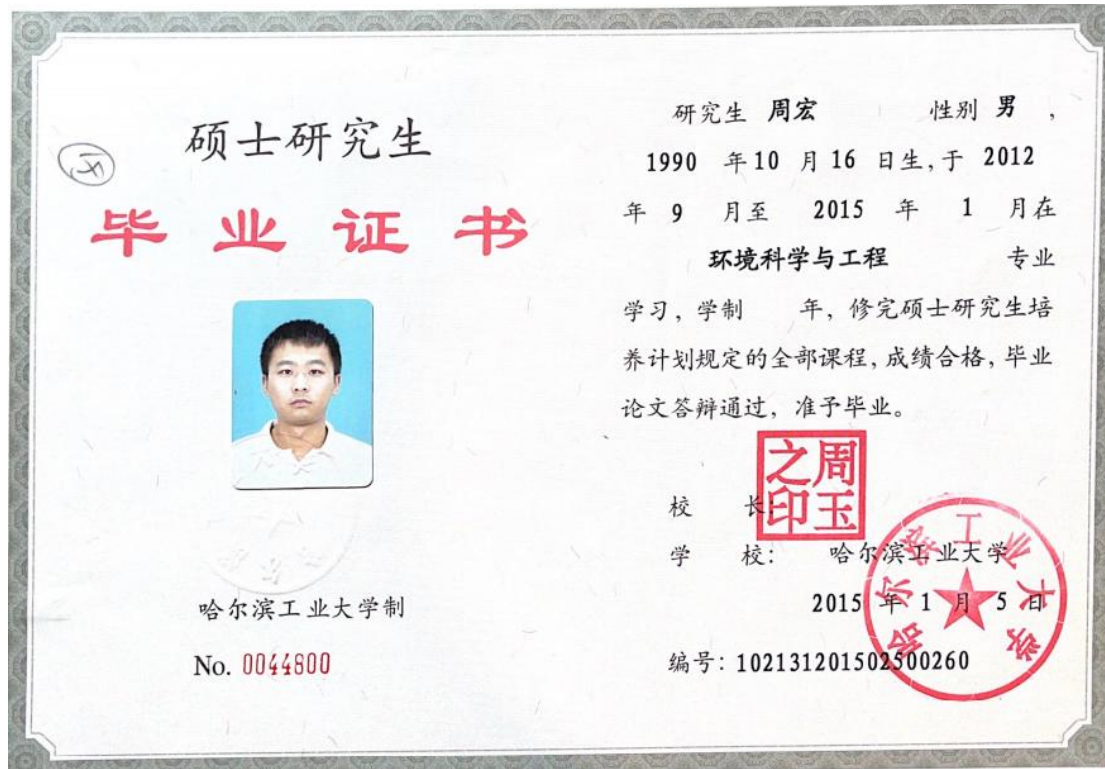 硕士研究生
毕业证书
哈尔滨工业大学制
No. 0044800
研究生 周宏 性别 男 ，
1990 年 10 月 16 日生，于 2012
年 9 月至 2015 年 1 月在
环境科学与工程 专业
学习，学制 年，修完硕士研究生培
养计划规定的全部课程，成绩合格，毕业
论文答辩通过，准予毕业。
周玉之印
校 长：
学 校： 哈尔滨工业大学
2015 年 1 月 5 日
编号：102131201502500260
哈尔滨工业大学